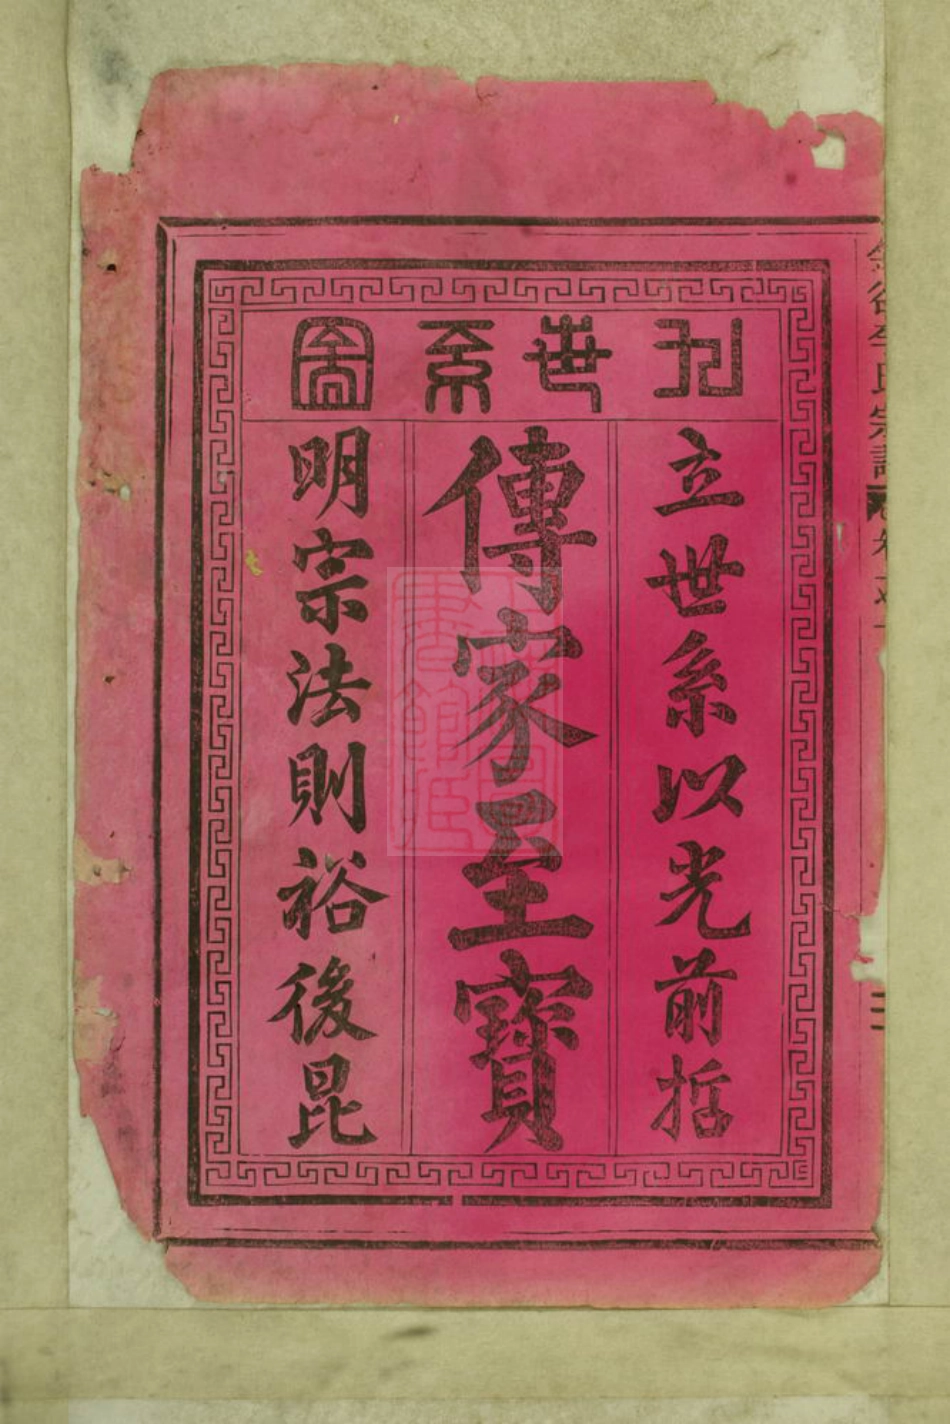 世系圖
立世系以光前哲
傳家至寶
明宗法則裕後昆
氏宗譜